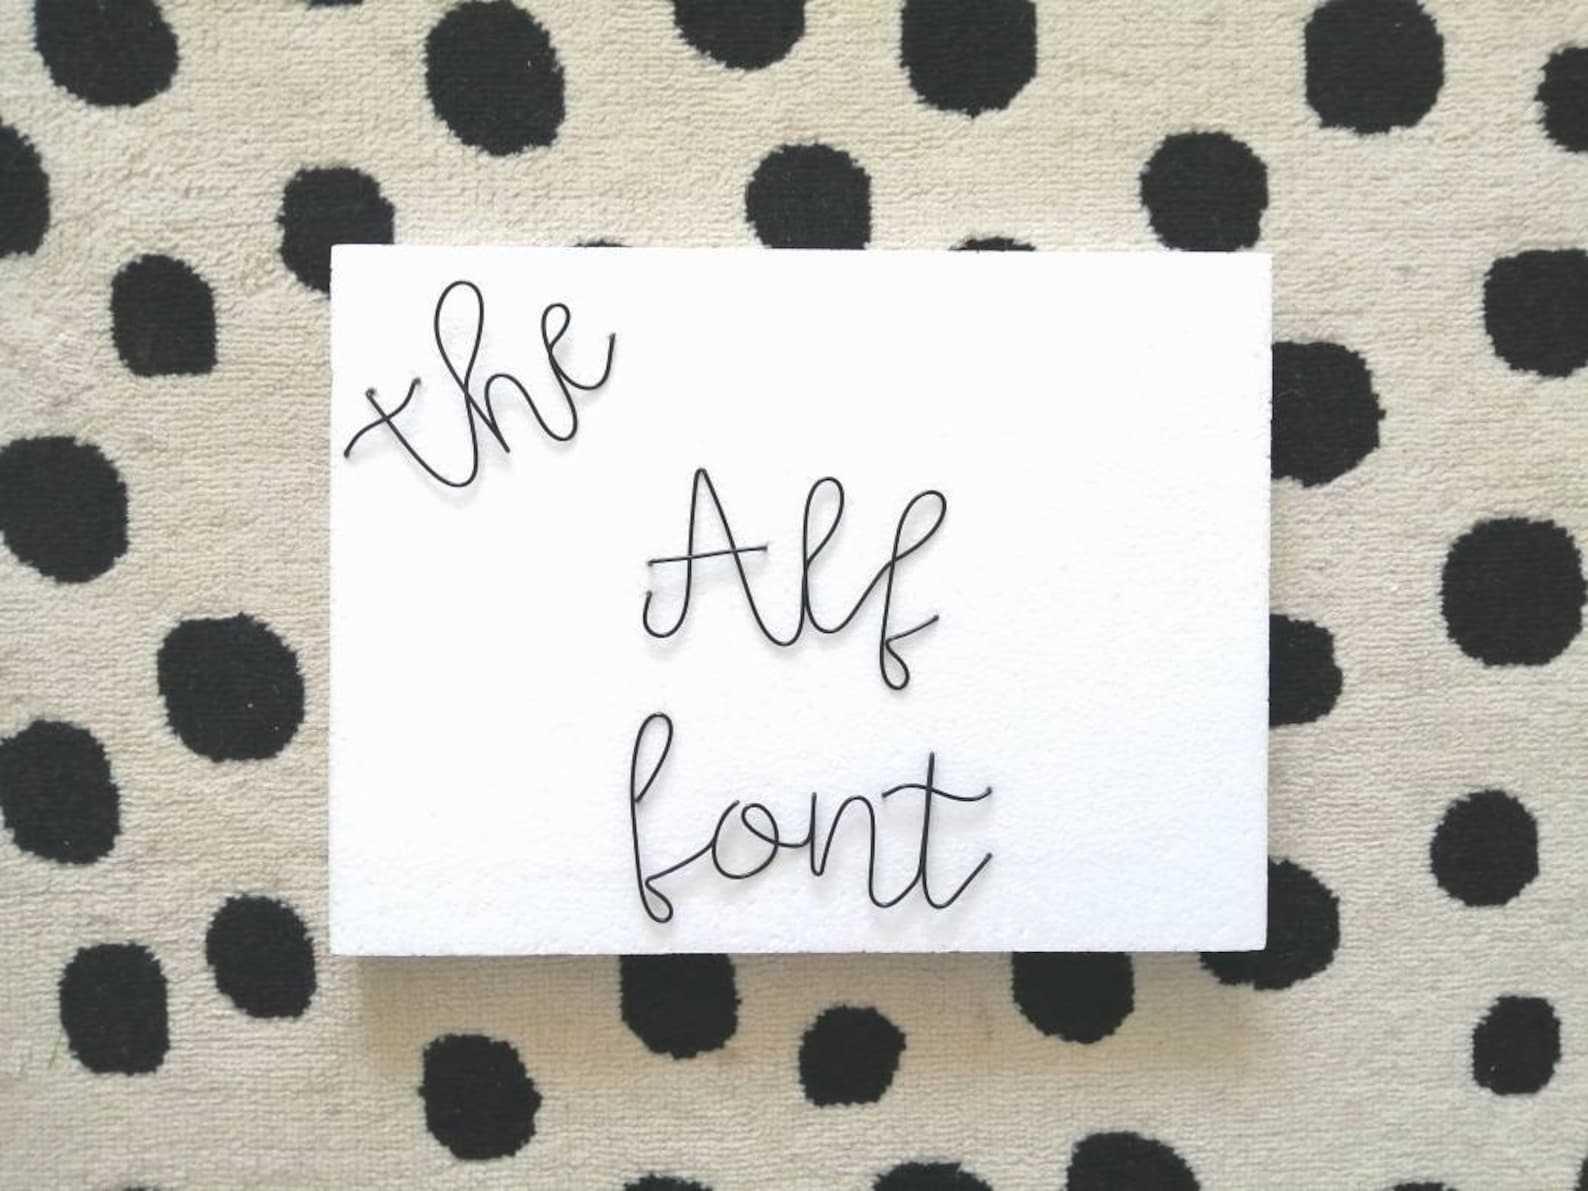 the
Alf
font